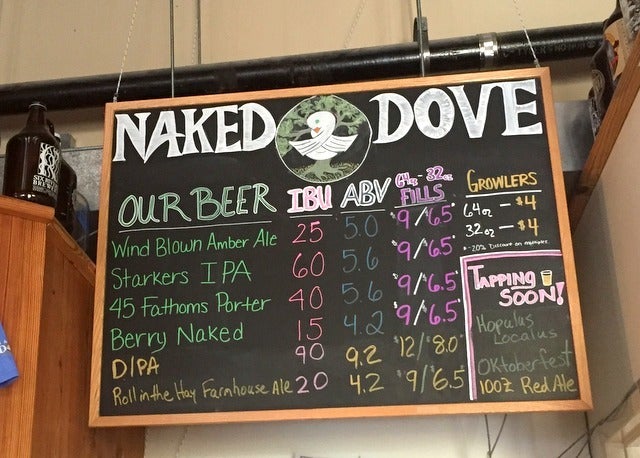 NAKED DOVE
OUR BEER IBU ABV 64oz - 32oz FILLS
Wind Blown Amber Ale 25 5.0 $9/$6.5
Starkers IPA 60 5.6 $9/$6.5
45 Fathoms Porter 40 5.6 $9/$6.5
Berry Naked 15 4.2 $9/$6.5
DIPA 90 9.2 $12/$8.0
Roll in the Hay Farmhouse Ale 20 4.2 $9/$6.5
GROWLERS
64oz - $4
32oz - $4
*-20% Discount on multiples
TAPPING
SOON!
Hopulus
Localus
Oktoberfest
100Z Red Ale